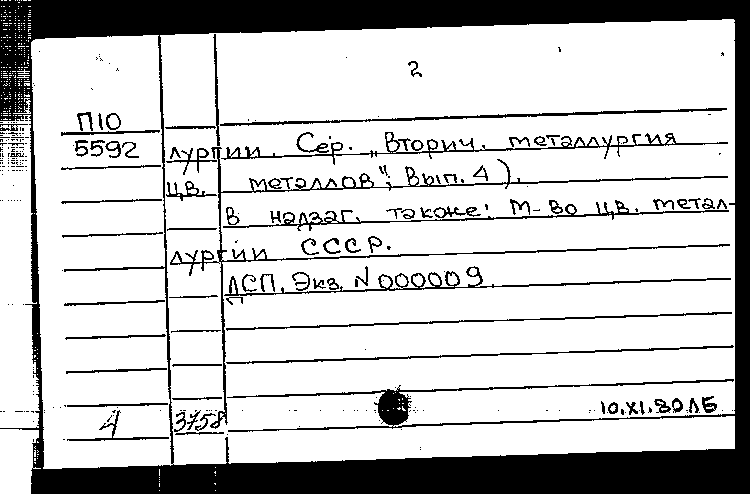 2
П10
5592 лургии. Сер. „Вторич. металлургия
цв. металлов"; Вып. 4).
В надзаг. также: М-во цв. метал-
лургии СССР.
ДСП. Экз. N 000009.
4 3758 10.XI.80 ЛБ